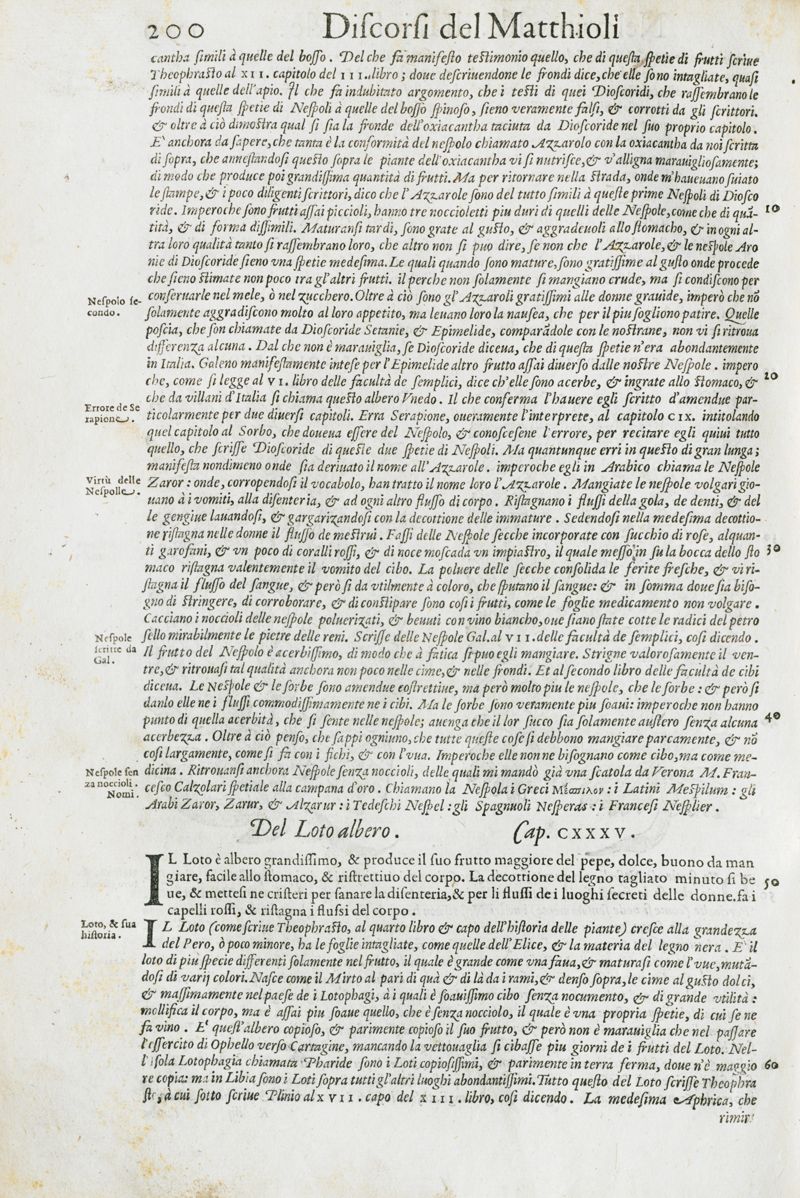 200 Diſcorſi del Matthioli
cantha ſimili à quelle del boſſo. Del che fà manifeſto teſtimonio quello, che di queſta ſpetie di frutti ſcriue
Theophraſto al XII. capitolo del III. libro; doue deſcriuendone le frondi dice, che elle ſono intagliate, quaſi
ſimili à quelle dell'apio. Il che fa indubitato argomento, che i teſti di quei Dioſcoridi, che raſſembrano le
frondi di queſta ſpetie di Neſpoli à quelle del boſſo ſpinoſo, ſieno veramente falſi, & corrotti da gli ſcrittori.
& oltre à ciò dimoſtra qual ſi ſia la fronde dell'oxiacantha taciuta da Dioſcoride nel ſuo proprio capitolo.
E' anchora da ſapere, che tanta è la conformità del neſpolo chiamato Azzarolo con la oxiacantha da noi ſcritta
di ſopra, che anneſtandoſi queſto ſopra le piante dell'oxiacantha vi ſi nutriſce, & v'alligna marauiglioſamente;
di modo che produce poi grandiſſima quantità di frutti. Ma per ritornare nella ſtrada, onde m'haueuano ſuiato
le ſtampe, & i poco diligenti ſcrittori, dico che l'Azzarole ſono del tutto ſimili à queſte prime Neſpoli di Dioſco
ride. Imperoche ſono frutti aſſai piccioli, hanno tre noccioletti piu duri di quelli delle Neſpole, come che di quã- 10
tità, & di forma diſſimili. Maturanſi tardi, ſono grate al guſto, & aggradeuoli allo ſtomaco, & in ogni al-
tra loro qualità tanto ſi raſſembrano loro, che altro non ſi puo dire, ſe non che l'Azzarole, & le neſpole Aro
nie di Dioſcoride ſieno vna ſpetie medeſima. Le quali quando ſono mature, ſono gratiſſime al guſto onde procede
che ſieno ſtimate non poco tra gl'altri frutti. il perche non ſolamente ſi mangiano crude, ma ſi condiſcono per
Neſpolo ſe-
condo.
conſeruarle nel mele, ò nel zucchero. Oltre à ciò ſono gl'Azzaroli gratiſſimi alle donne grauide, imperò che nõ
ſolamente aggradiſcono molto al loro appetito, ma leuano loro la nauſea, che per il piu ſogliono patire. Quelle
poſcia, che ſon chiamate da Dioſcoride Setanie, & Epimelide, comparãdole con le noſtrane, non vi ſi ritroua
differenza alcuna. Dal che non è marauiglia, ſe Dioſcoride diceua, che di queſta ſpetie n'era abondantemente
in Italia. Galeno manifeſtamente inteſe per l'Epimelide altro frutto aſſai diuerſo dalle noſtre Neſpole. impero
che, come ſi legge al VI. libro delle facultà de ſemplici, dice ch'elle ſono acerbe, & ingrate allo ſtomaco, & 20
che da villani d'Italia ſi chiama queſto albero Vnedo. Il che conferma l'hauere egli ſcritto d'amendue par-
Errore de Se
rapione.
ticolarmente per due diuerſi capitoli. Erra Serapione, oueramente l'interprete, al capitolo CIX. intitolando
quel capitolo al Sorbo, che doueua eſſere del Neſpolo, & conoſceſene l'errore, per recitare egli quiui tutto
quello, che ſcriſſe Dioſcoride di queſte due ſpetie di Neſpoli. Ma quantunque erri in queſto di gran lunga;
manifeſta nondimeno onde ſia deriuato il nome all'Azzarole. imperoche egli in Arabico chiama le Neſpole
Virtù delle
Neſpolle.
Zaror: onde, corropendoſi il vocabolo, han tratto il nome loro l'Azzarole. Mangiate le neſpole volgari gio-
uano à i vomiti, alla diſenteria, & ad ogni altro fluſſo di corpo. Riſtagnano i fluſſi della gola, de denti, & del
le gengiue lauandoſi, & gargarizandoſi con la decottione delle immature. Sedendoſi nella medeſima decottio-
ne riſtagna nelle donne il fluſſo de meſtrui. Faſſi delle Neſpole ſecche incorporate con ſucchio di roſe, alquan-
ti garofani, & vn poco di coralli roſſi, & di noce moſcada vn impiaſtro, il quale meſſo in ſu la bocca dello ſto 30
maco riſtagna valentemente il vomito del cibo. La poluere delle ſecche conſolida le ferite freſche, & vi ri-
ſtagna il fluſſo del ſangue, & però ſi da vtilmente à coloro, che ſputano il ſangue: & in ſomma doue ſia biſo-
gno di ſtringere, di corroborare, & di conſtipare ſono coſi i frutti, come le foglie medicamento non volgare.
Cacciano i noccioli delle neſpole poluerizati, & beuuti con vino biancho, oue ſiano ſtate cotte le radici del petro
Neſpole
ſcritte da
Gal.
ſello mirabilmente le pietre delle reni. Scriſſe delle Neſpole Gal. al VII. delle facultà de ſemplici, coſi dicendo.
Il frutto del Neſpolo è acerbiſſimo, di modo che à fatica ſi puo egli mangiare. Strigne valoroſamente il ven-
tre, & ritrouaſi tal qualità anchora non poco nelle cime, & nelle frondi. Et al ſecondo libro delle facultà de cibi
diceua. Le Neſpole & le ſorbe ſono amendue coſtrettiue, ma però molto piu le neſpole, che le ſorbe: & però ſi
danlo elle ne i fluſſi commodiſſimamente ne i cibi. Ma le ſorbe ſono veramente piu ſoaui: imperoche non hanno
punto di quella acerbità, che ſi ſente nelle neſpole; auenga che il lor ſucco ſia ſolamente auſtero ſenza alcuna 40
acerbezza. Oltre à ciò penſo, che ſappi ogniuno, che tutte queſte coſe ſi debbono mangiare parcamente, & nõ
coſi largamente, come ſi fà con i fichi, & con l'vua. Imperoche elle non ne biſognano come cibo, ma come me-
Neſpole ſen
za noccioli.
Nomi.
dicina. Ritrouanſi anchora Neſpole ſenza noccioli, delle quali mi mandò già vna ſcatola da Verona M. Fran-
ceſco Calzolari ſpetiale alla campana d'oro. Chiamano la Neſpola i Greci Μέσπιλον: i Latini Meſpilum: gli
Arabi Zaror, Zarur, & Alzarur: i Tedeſchi Neſpel: gli Spagnuoli Neſperas: i Franceſi Neſplier.
Del Loto albero. Cap. CXXXV.
IL Loto è albero grandiſſimo, & produce il ſuo frutto maggiore del pepe, dolce, buono da man
giare, facile allo ſtomaco, & riſtrettiuo del corpo. La decottione del legno tagliato minuto ſi be 50
ue, & metteſi ne criſteri per ſanare la diſenteria, & per li fluſſi de i luoghi ſecreti delle donne. fa i
capelli roſſi, & riſtagna i fluſsi del corpo.
Loto, & ſua
hiſtoria.
IL Loto (come ſcriue Theophraſto, al quarto libro & capo dell'hiſtoria delle piante) creſce alla grandezza
del Pero, ò poco minore, ha le foglie intagliate, come quelle dell'Elice, & la materia del legno nera. E' il
loto di piu ſpecie differenti ſolamente nel frutto, il quale è grande come vna faua, & maturaſi come l'vue, mutã-
doſi di varij colori. Naſce come il Mirto al pari di quà & di là da i rami, & denſo ſopra, le cime al guſto dolci,
& maſſimamente nel paeſe de i Lotophagi, à i quali è ſoauiſſimo cibo ſenza nocumento, & di grande vtilità:
mollifica il corpo, ma è aſſai piu ſoaue quello, che è ſenza nocciolo, il quale è vna propria ſpetie, di cui ſe ne
fa vino. E' queſt'albero copioſo, & parimente copioſo il ſuo frutto, & però non è marauiglia che nel paſſare
l'eſſercito di Ophello verſo Cartagine, mancando la vettouaglia ſi cibaſſe piu giorni de i frutti del Loto. Nel-
l'iſola Lotophagia chiamata Pharide ſono i Loti copioſiſſimi, & parimente in terra ferma, doue n'è maggio 60
re copia: ma in Libia ſono i Loti ſopra tutti gl'altri luoghi abondantiſſimi. Tutto queſto del Loto ſcriſſe Theophra
ſto, à cui ſotto ſcriue Plinio al XVII. capo del XIII. libro, coſi dicendo. La medeſima Aphrica, che
rimir